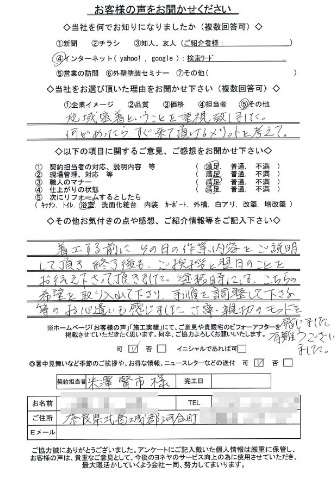 お客様の声をお聞かせください
◇当社を何でお知りになりましたか(複数回答可)
①新聞 ②チラシ ③知人、友人(ご紹介者様・ )
④インターネット(yahoo!、google):検索ワード
⑤営業の訪問 ⑥外壁塗装セミナー ⑦その他( )
◇当社をお選び頂いた理由をお聞かせ下さい(複数回答可)
①企業イメージ ②品質 ③価格 ④担当者 ⑤その他
地域密着ということを重視致しました。
何かあったら すぐ来て頂けるメリットを考えて。
◇以下の項目に関するご意見、ご感想をお聞かせ下さい
(1) 契約担当者の対応、説明内容 等 (満足、普通、不満)
(2) 現場管理、対応 等 (満足、普通、不満)
(3) 職人のマナー (満足、普通、不満)
(4) 仕上がりの状態 (満足、普通、不満)
(5) 次にリフォームするとしたら
(キッチン、トイレ、浴室、洗面化粧台、内装、カーポート、外構、白アリ、改築、増改築)
◇その他お気付きの点や感想、ご紹介情報等をご記入下さい
着工する前に その日の作業内容を ご説明
して頂き 終了後も、ご挨拶と翌日のことを
お伝え下さって頂きました。塗装時にも、こちらの
希望を取り入れて下さり、手順を調整して下さる
等のお心遣いも感じました。丁寧・親切のモットーを
感じました。
有難うござい
ました。
※ホームページ「お客様の声」「施工実績」にて、ご意見や貴殿宅のビフォーアフターを
掲載させていただきたく思います。何卒、ご協力よろしくお願いいたします。
可 否 イニシャルであれば可
◎暑中見舞いなど季節のご挨拶や、お得な情報、ニュースレターなどの送付 可 否
契約担当者 米澤 賢市 様 完工日
お名前 TEL
ご住所 奈良県北葛城郡河合町
Eメール
ご協力誠にありがとうございました。アンケートにご記入戴いた個人情報は厳重に保管し、
お客様の声は、貴重なご意見として、今後のヨネヤのサービス向上の為に使用させていただき、
最大限活かしていくよう会社一同、努力してまいります。